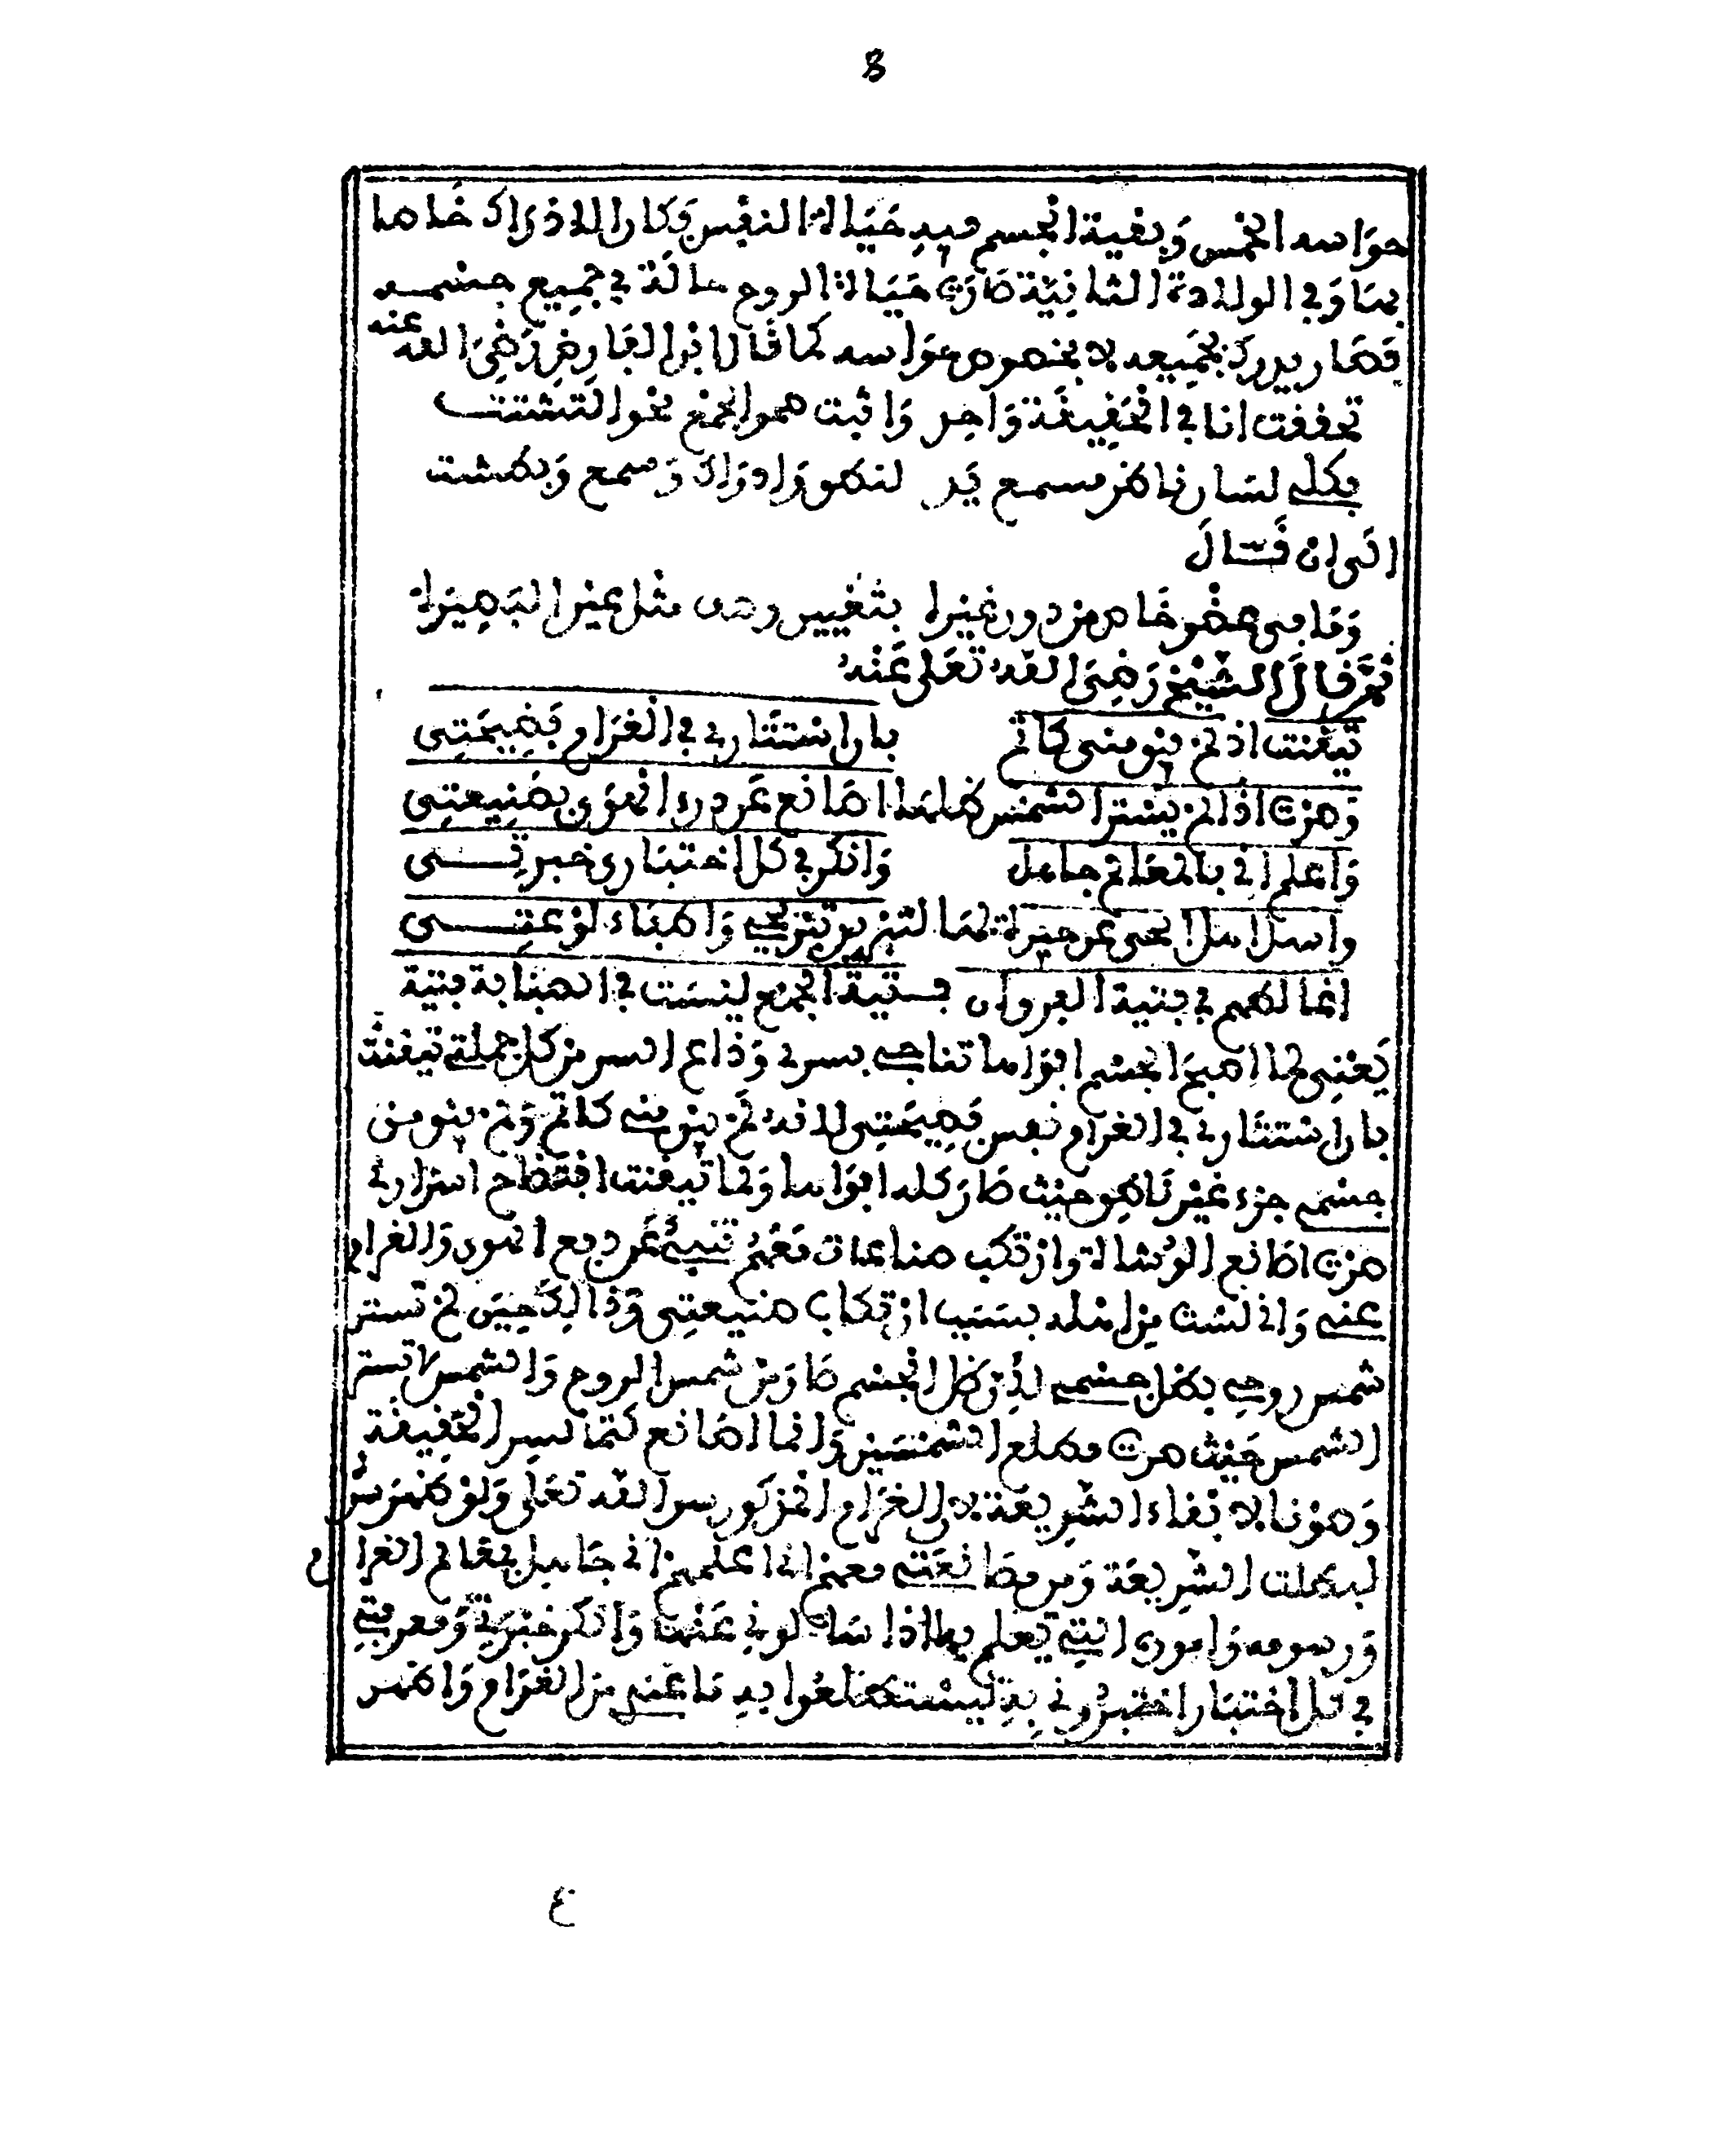 8
حواسه الخمس وبقية الجسم فيه حياة النفس وكان الادراك خاصا
بها وفي الولادة الثانية صارت حياة الروح حالة في جميع جسمه
فصار يدرك بجميعه لا بخصوص حواسه كما قال ابن الفارض رضي الله عنه
تحققت انا في الحقيقة واحد واثبت صحو الجمع محو التشتت
فكلي لسان ناظر مسمع يد لنطق وادراك وسمع وبطشت
الى ان قال
وما في عضو خص من دون غيره بتعيين وصف مثل عين البصيرة
ثم قال الشيخ رضي الله تعلى عنه
تيقنت اذ لم يبق مني كاتم بان استتاري في الغرام فضيحتي
وصرت اذا لم يستر الشمس ظلها اصانع عن درء الهوى بصنيعتي
واعلم اني بالمعالم جاهل وانكر في كل اختباري خبرتي
واسئل اهل الحي عن جيرة لها لتبريد تبريحي واطفاء لوعتي
اغالطهم في فتية العروان فتية الجمع ليست في الصبابة فتية
يعني لما اصبح الجسم افواها تناجي بسري وذاع السر من كل جملتي تيقنت
بان استتاري في الغرام نفس فضيحتي لانه لم يبق مني كاتم ولم يبق من
جسمي جزء غير ناطق حيث صار كله افواها ولما تيقنت افتضاح اسراري
صرت اصانع الوشاة وارتكب صناعات معهم تنبئ عن دفع الهوى والغرام
عني واني لست من اهله بسبب ارتكاب صنيعتي وذالك حين لم تستر
شمس روحي بظل جسمي لان ظل الجسم صار من شمس الروح والشمس لا تستر
الشمس حيث صرت مطلع الشمسين وانما اصانع كتما لسر الحقيقة
وصونا لا بقاء الشريعة لان الغرام المذكور سر الله تعلى ولو ظهر سر
لبطلت الشريعة ومن مصانعتي معهم اني اعلمهم اني جاهل بمعالم الغرام
ورسومه واموري التي تعلم بها اذا سالوني عنها وانكر خبرتي ومعرفتي
في كل اختبار اختبروني به ليستطلعوا به ما عندي من الغرام واظهر
ع